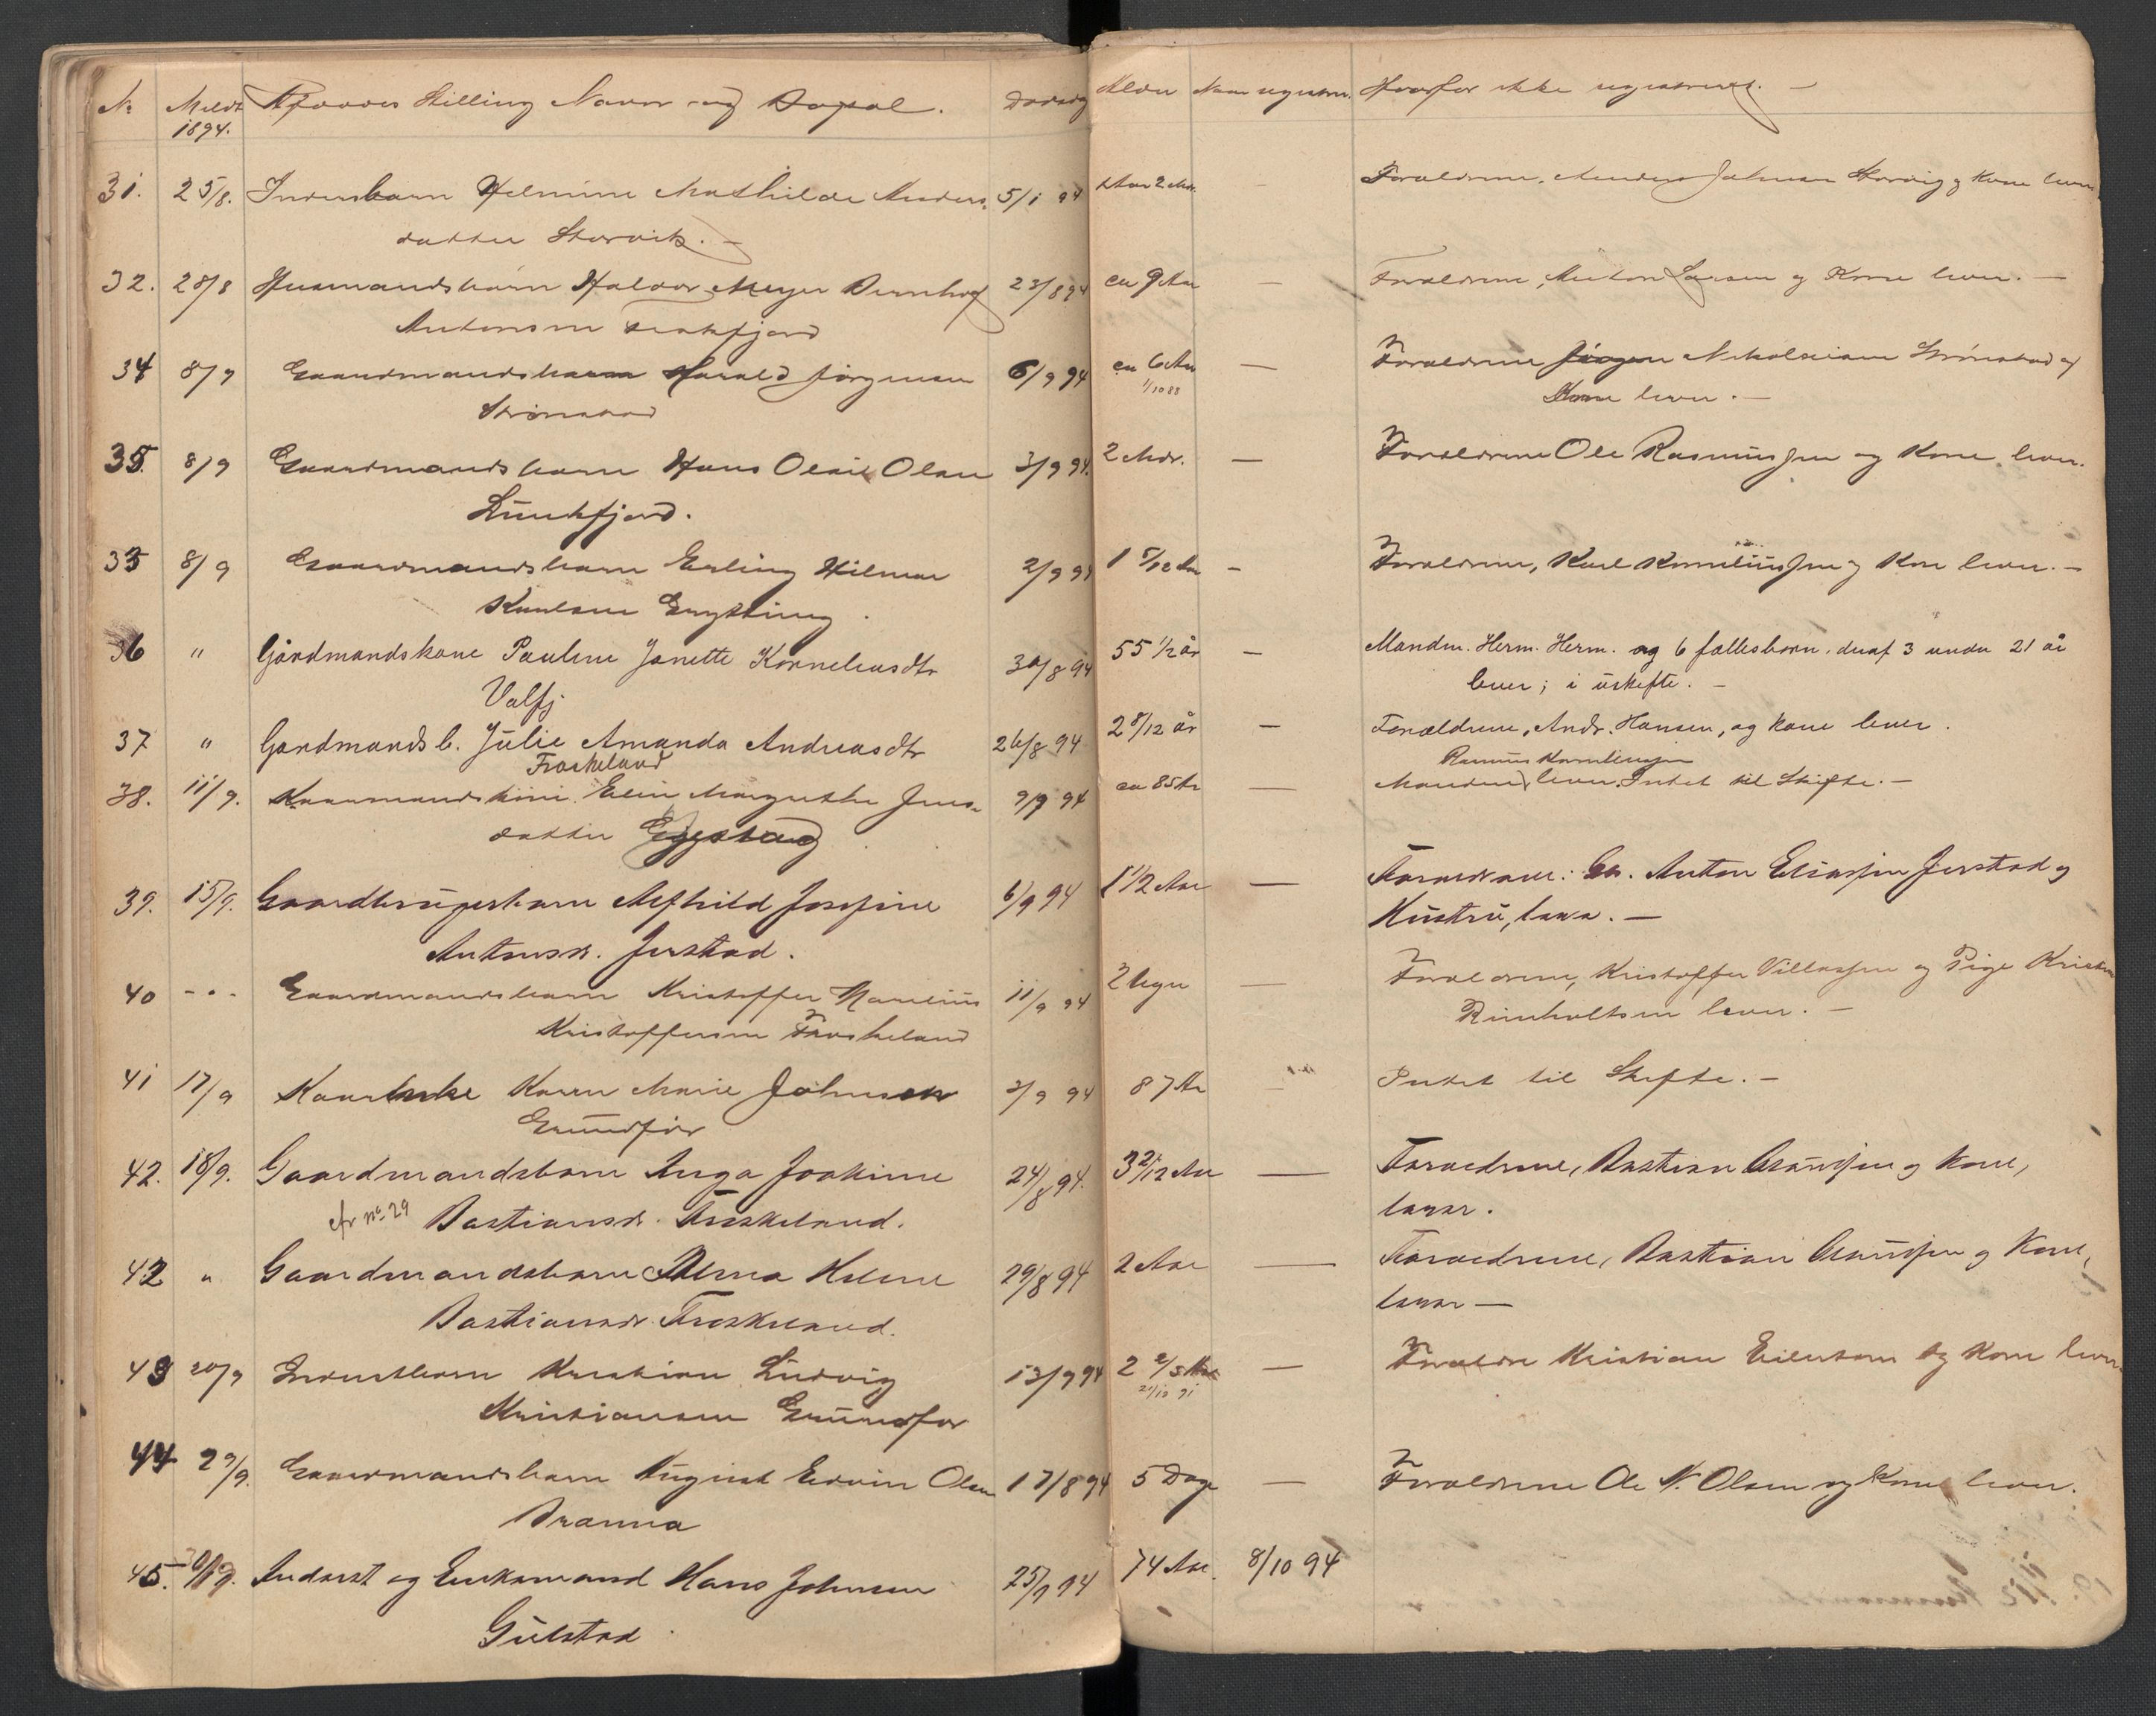 No Meldt 1894. Afdødes Stilling Navn og Bopæl. Dødsdag Alder Naar registr. Hvorfor ikke registreret. —
31. 25/8. Inderstbarn Helmine Mathilde Anders- 5/1 94 2 Mdr. — Forældrene, Anders Johnsen Storvig og Kone lever
datter Storvik. —
32. 28/8 Husmandsbarn Haldor Meyer Bernhof 23/8 94 ca 9 Aar — Forældrene, Anton Larsen og Kone lever. —
Antonsen
34 8/9 Gaardmandsbarn Harald Jørgensen 6/9 94 ca 6 Aar — Forældrene Jørgen Nikolaisen Strønstad og
Strønstad 1/10 88 Kone lever. —
35. 8/9 Gaardmandsbarn Hans Olai Olsen 3/9 94. 2 Mdr. — Forældrene Ole Rasmussen og Kone lever.
fjord.
33 8/9 Gaardmandsbarn Erling Hilmar 2/9 94 1 5/12 Aar — Forældrene, Karl Korneliussen og Kone lever. —
Karlsen
36 " Gårdmandskone Pauline Janette Korneliusdtr 30/8 94 55 1/2 år — Manden. Herm. Herm. og 6 fællesbørn, deraf 3 under 21 år
Valfj lever; i uskifte. —
37 " Gardmandsb. Julie Amanda Andreasdtr 26/8 94 2 8/12 år — Forældrene, Andr. Hansen, og kone lever.
Froskeland Rasmus Korneliussen
38. 11/9. Kaarmandskone Elen Margrethe Jens- 9/9 94 ca 85 Ar — Manden lever. Intet til Skifte. —
datter Eggestad
39. 15/9. Gaardbrugerbarn Alfhild Josefine 6/9 94 1 1/2 Aar — Forældrene: Anton Eliassen Jerstad og
Antonsd. Jerstad. Hustru, lever. —
40 -"- Gaardmandsbarn Kristoffer Marelius 11/9 94 2 Uger — Forældrene, Kristoffer Villassen og Pige
Kristoffersen Froskeland Rinholtsen lever. —
41 17/9 Kaarenke Karen Marie Johnsen 3/9 94 87 Ar — Intet til Skifte. —
Grundfør
42. 18/9. Gaardmandsbarn Inga Joakime 24/8 94. 3 2/12 Aar — Forældrene, Bastian Asmussen og Kone,
cfr no. 29 Bastiansd. Froskeland. lever.
42 " Gaardmandsbarn Alma Helene 29/8 94 2 Aar — Forældrene, Bastian Asmussen og Kone,
Bastiansdr. Froskeland. lever —
43 20/9 Inderstbarn Kristian Ludvig 13/9 94 2 — Forældre Kristian Eilertsen og Kone lever
Kristiansen Grundfør 21/10 91
44 29/9. Gaardmandsbarn August Edvin Olsen 17/8 94 5 Dage — Forældrene Ole N. Olsen og Kone lever.
Branna
45. Inderst og Enkemand Hans Johnsen 25/9 94 74 Aar. 8/10 94
Gulstad